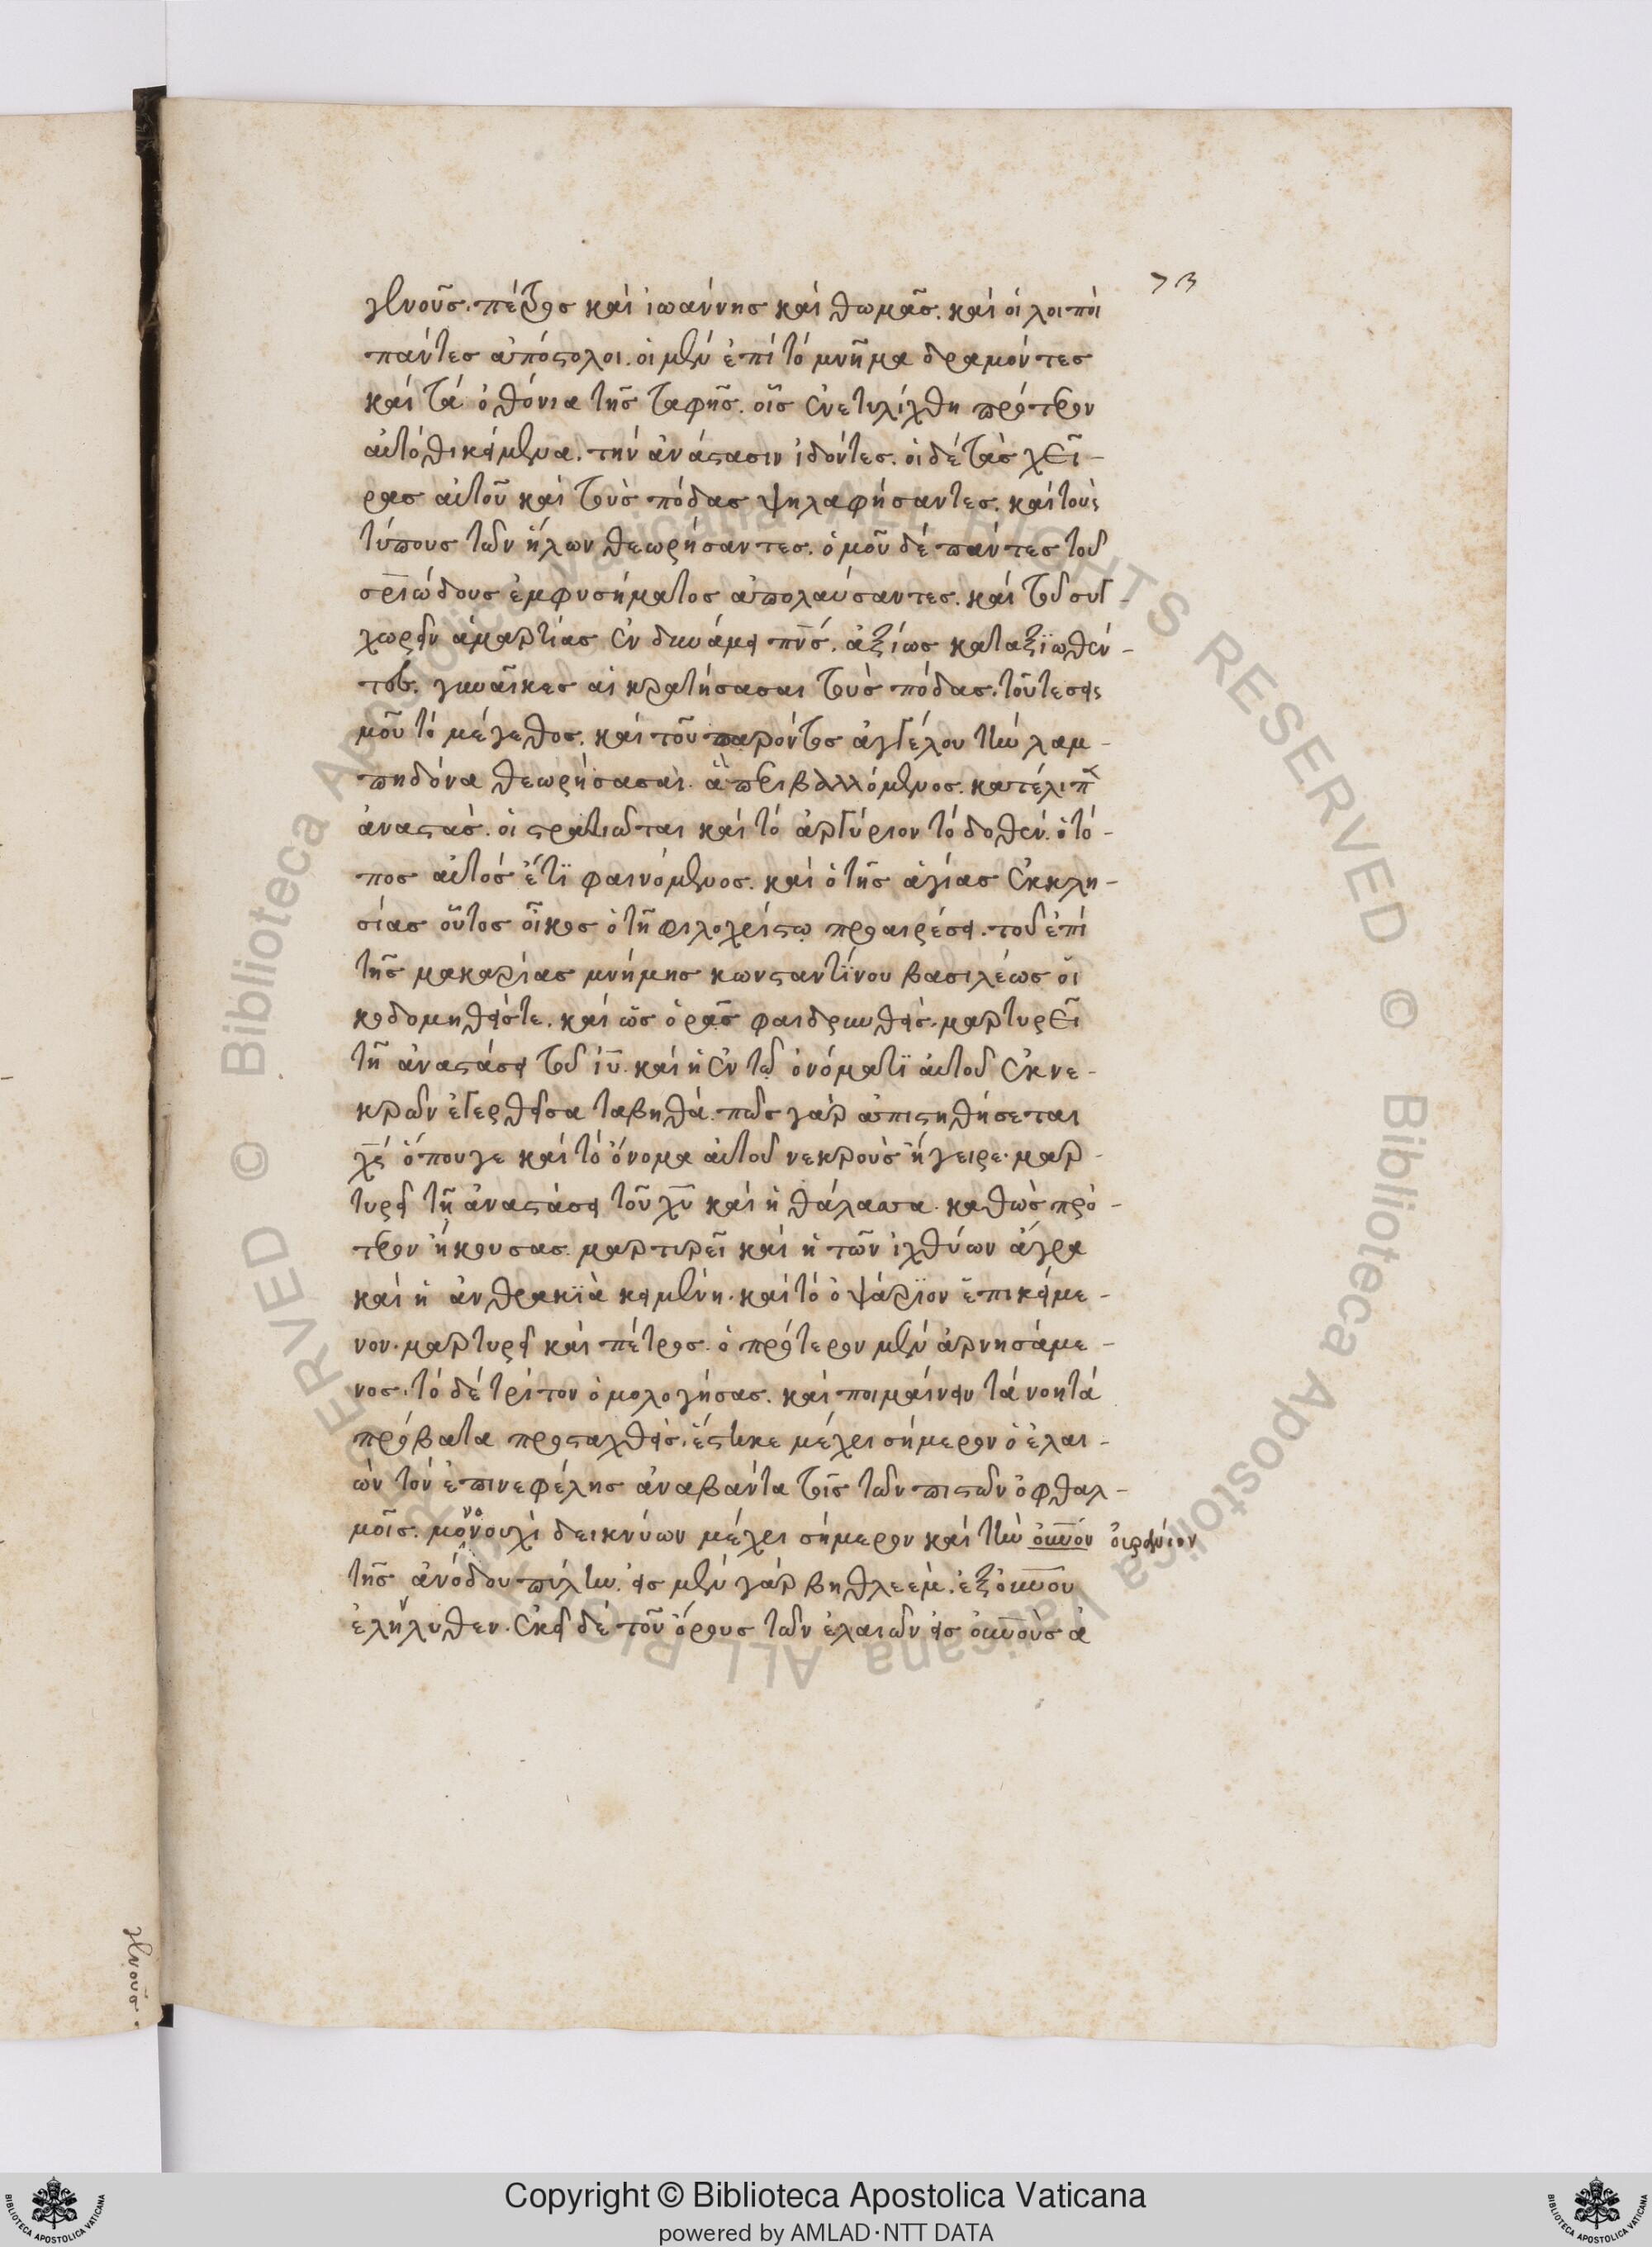 73
γενοῦς. πέτρος καὶ ἰωάννης καὶ θωμᾶς. καὶ οἱ λοιποὶ
πάντες ἀπόστολοι. οἱ μὲν ἐπὶ τὸ μνῆμα δραμόντες
καὶ τὰ ὀθόνια τῆς ταφῆς. οἷς ἐνετυλίχθη πρότερον
αὐτόθι κείμενα. τὴν ἀνάστασιν ἰδόντες. οἱ δὲ τὰς χεῖ-
ρας αὐτοῦ καὶ τοὺς πόδας ψηλαφήσαντες. καὶ τοὺς
τύπους τῶν ἥλων θεωρήσαντες. ὁμοῦ δὲ πάντες τοῦ
σρ̅ιώδους ἐμφυσήματος ἀπολαύσαντες. καὶ τοῦ συγ-
χωρεῖν ἁμαρτίας ἐν δυνάμει πν̅ς. ἀξίως καταξϊωθέν-
τες. γυναῖκες αἱ κρατήσασαι τοὺς πόδας. τοῦ τε σεις
μοῦ τὸ μέγεθος. καὶ τοῦ παρόντος ἀγγέλου τὴν λαμ-
πηδόνα θεωρήσασαι. ἃ περιβαλλόμενος. κατέλιπ
ἀναστάς. οἱ στρατιῶται καὶ τὸ ἀργύριον τὸ δοθέν. ὁ τό-
πος αὐτὸς ἔτϊ φαινόμενος. καὶ ὁ τῆς ἁγίας ἐκκλη-
σίας οὗτος οἶκος ὁ τῇ φιλοχρίστῳ προαιρέσει. τοῦ ἐπὶ
τῆς μακαρίας μνήμης κωνσταντίνου βασιλέως οἰ
κοδομηθείς τε. καὶ ὡς ὁρᾷς φαιδρυνθείς. μαρτυρεῖ
τῇ ἀναστάσει τοῦ ιυ̅. καὶ ἡ ἐν τῷ ὀνόματϊ αὐτοῦ ἐκ νε-
κρῶν ἐγερθεῖσα ταβηθά. πῶς γὰρ ἀπιστηθήσεται
χς̅ ὅπουγε καὶ τὸ ὄνομα αὐτοῦ νεκροὺς ἤγειρε. μαρ-
τυρεῖ τῇ ἀναστάσει τοῦ χυ̅ καὶ ἡ θάλασσα. καθὼς πρό-
τερον ἤκουσας. μαρτυρεῖ καὶ ἡ τῶν ἰχθύων ἄγρα
καὶ ἡ ἀνθρακϊὰ κειμένη. καὶ τὸ ὀψάρϊον ἐπικείμε-
νον. μαρτυρεῖ καὶ πέτρος. ὁ πρότερον μὲν ἀρνησάμε-
νος. τὸ δὲ τρίτον ὁμολογήσας. καὶ ποιμαίνειν τὰ νοητὰ
πρόβατα προσταχθείς. ἕστηκε μέχρι σήμερον ὁ ἐλαι-
ὼν τὸν ἐπι νεφέλης ἀναβάντα τοῖς τῶν πιστῶν ὀφθαλ-
μοῖς. μονονουχὶ δεικνύων μέχρι σήμερον καὶ τὴν οὐν̅όν οὐράνιον
τῆς ἀνόδου πύλην. εἰς μὲν γὰρ βηθλεὲμ. ἐξ οὐν̅ου
ἐλήλυθεν. ἐκεῖ δὲ τοῦ ὄρους τῶν ἐλαιῶν εἰς οὐν̅οὺς ἀ
γενοῦς.
© Biblioteca Apostolica Vaticana ALL RIGHTS RESERVED © Biblioteca Apostolica Vaticana ALL RIGHTS RESERVED
Copyright © Biblioteca Apostolica Vaticana
powered by AMLAD·NTT DATA
BIBLIOTECA APOSTOLICA VATICANA
BIBLIOTECA APOSTOLICA VATICANA